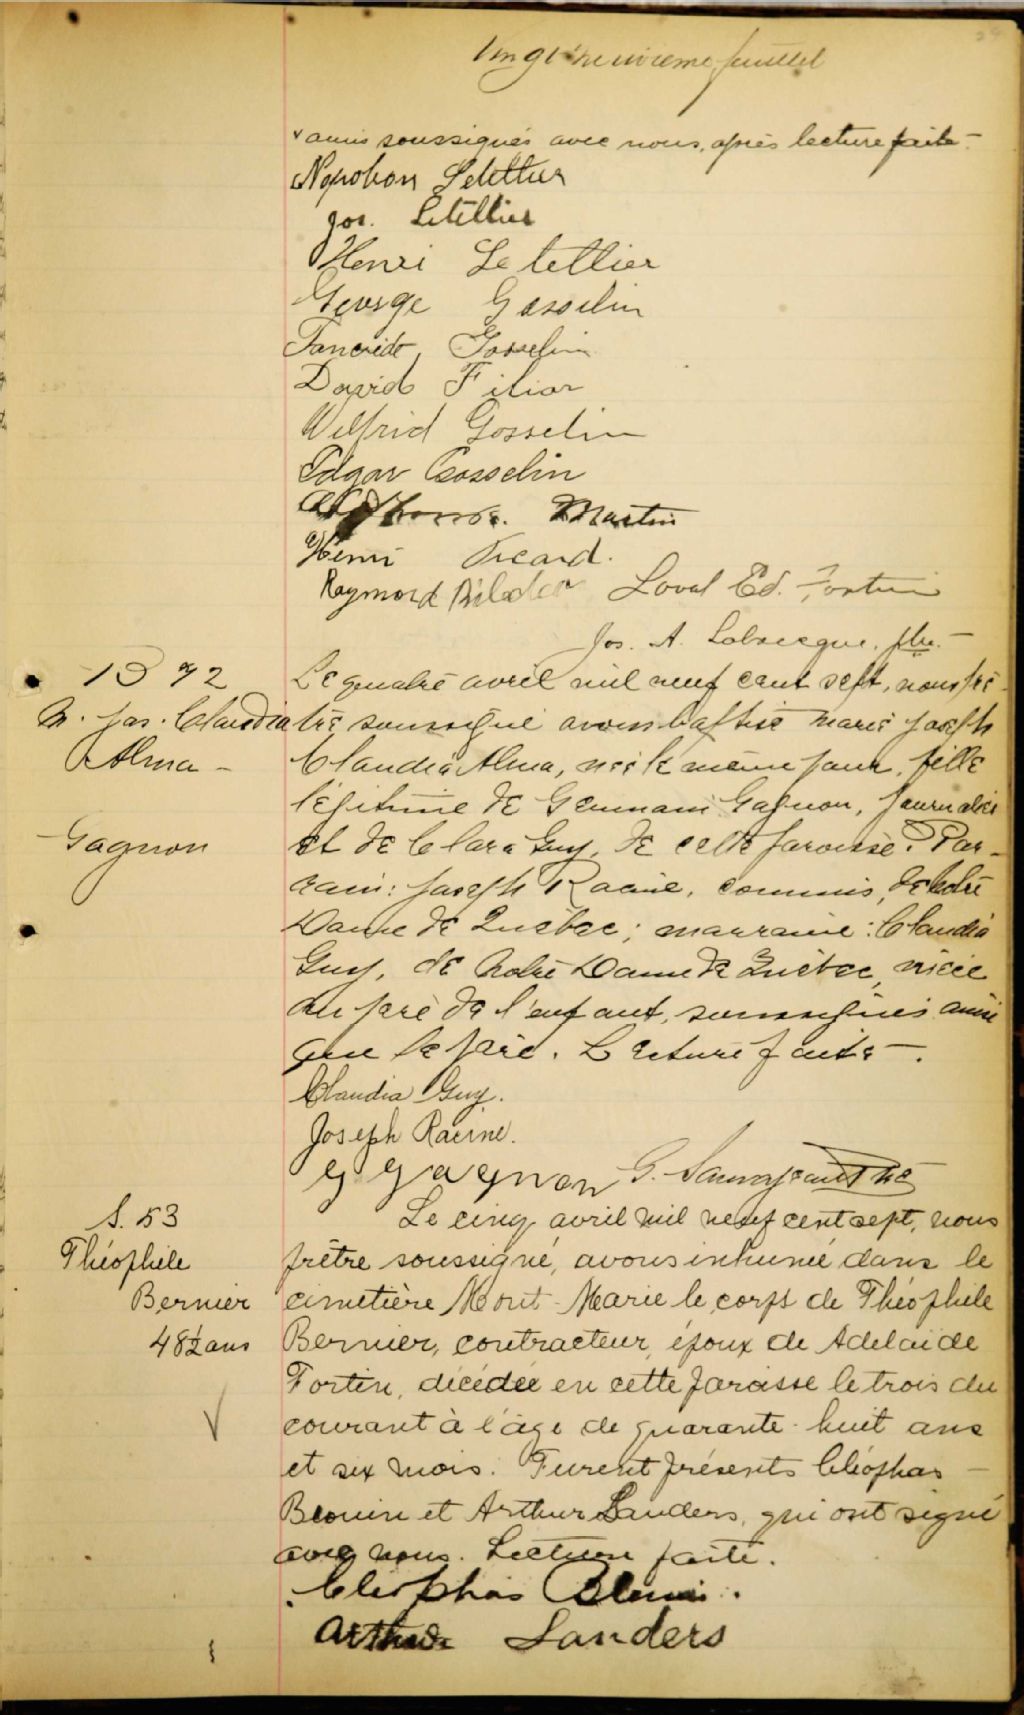 Vingt neuvième feuillet
amis soussignés avec nous, après lecture faite.-
Napoléon Letellier
Jos. Letellier
Henri Letellier
George Gosselin
Tancrède Gosselin
David Filion
Wilfrid Gosselin
Edgar Gosselin
Alphonse Martin
Henri Picard.
Raymond Bilodeau Laval Ed. Fortin
Jos. A. Labrecque, ptre.-
B 72
M. Jos. Claudia
Alma -
Gagnon
Le quatre avril mil neuf cent sept, nous prê-
tre soussigné avons baptisé Marie Joseph
Claudia Alma, née le même jour, fille
légitime de Germain Gagnon, journalier
et de Clara Guy, de cette paroisse. Par-
rain: Joseph Racine, commis, de Notre
Dame de Québec; marraine: Claudia
Guy, de Notre Dame de Québec, nièce
du père de l'enfant, soussignés ainsi
que le père. Lecture faite -.
Claudia Guy.
Joseph Racine.
G Gagnon G. Sauvageau Ptre
S. 53
Théophile
Bernier
48½ ans
Le cinq avril mil neuf cent sept, nous
prêtre soussigné, avons inhumé dans le
cimetière Mont-Marie le corps de Théophile
Bernier, contracteur, époux de Adelaïde
Fortin, décédée en cette paroisse le trois du
courant à l'âge de quarante-huit ans
et six mois. Furent présents Cléophas -
Blouin et Arthur Landers, qui ont signé
avec nous. Lecture faite.
Cléophas Blouin.
Arthur Landers